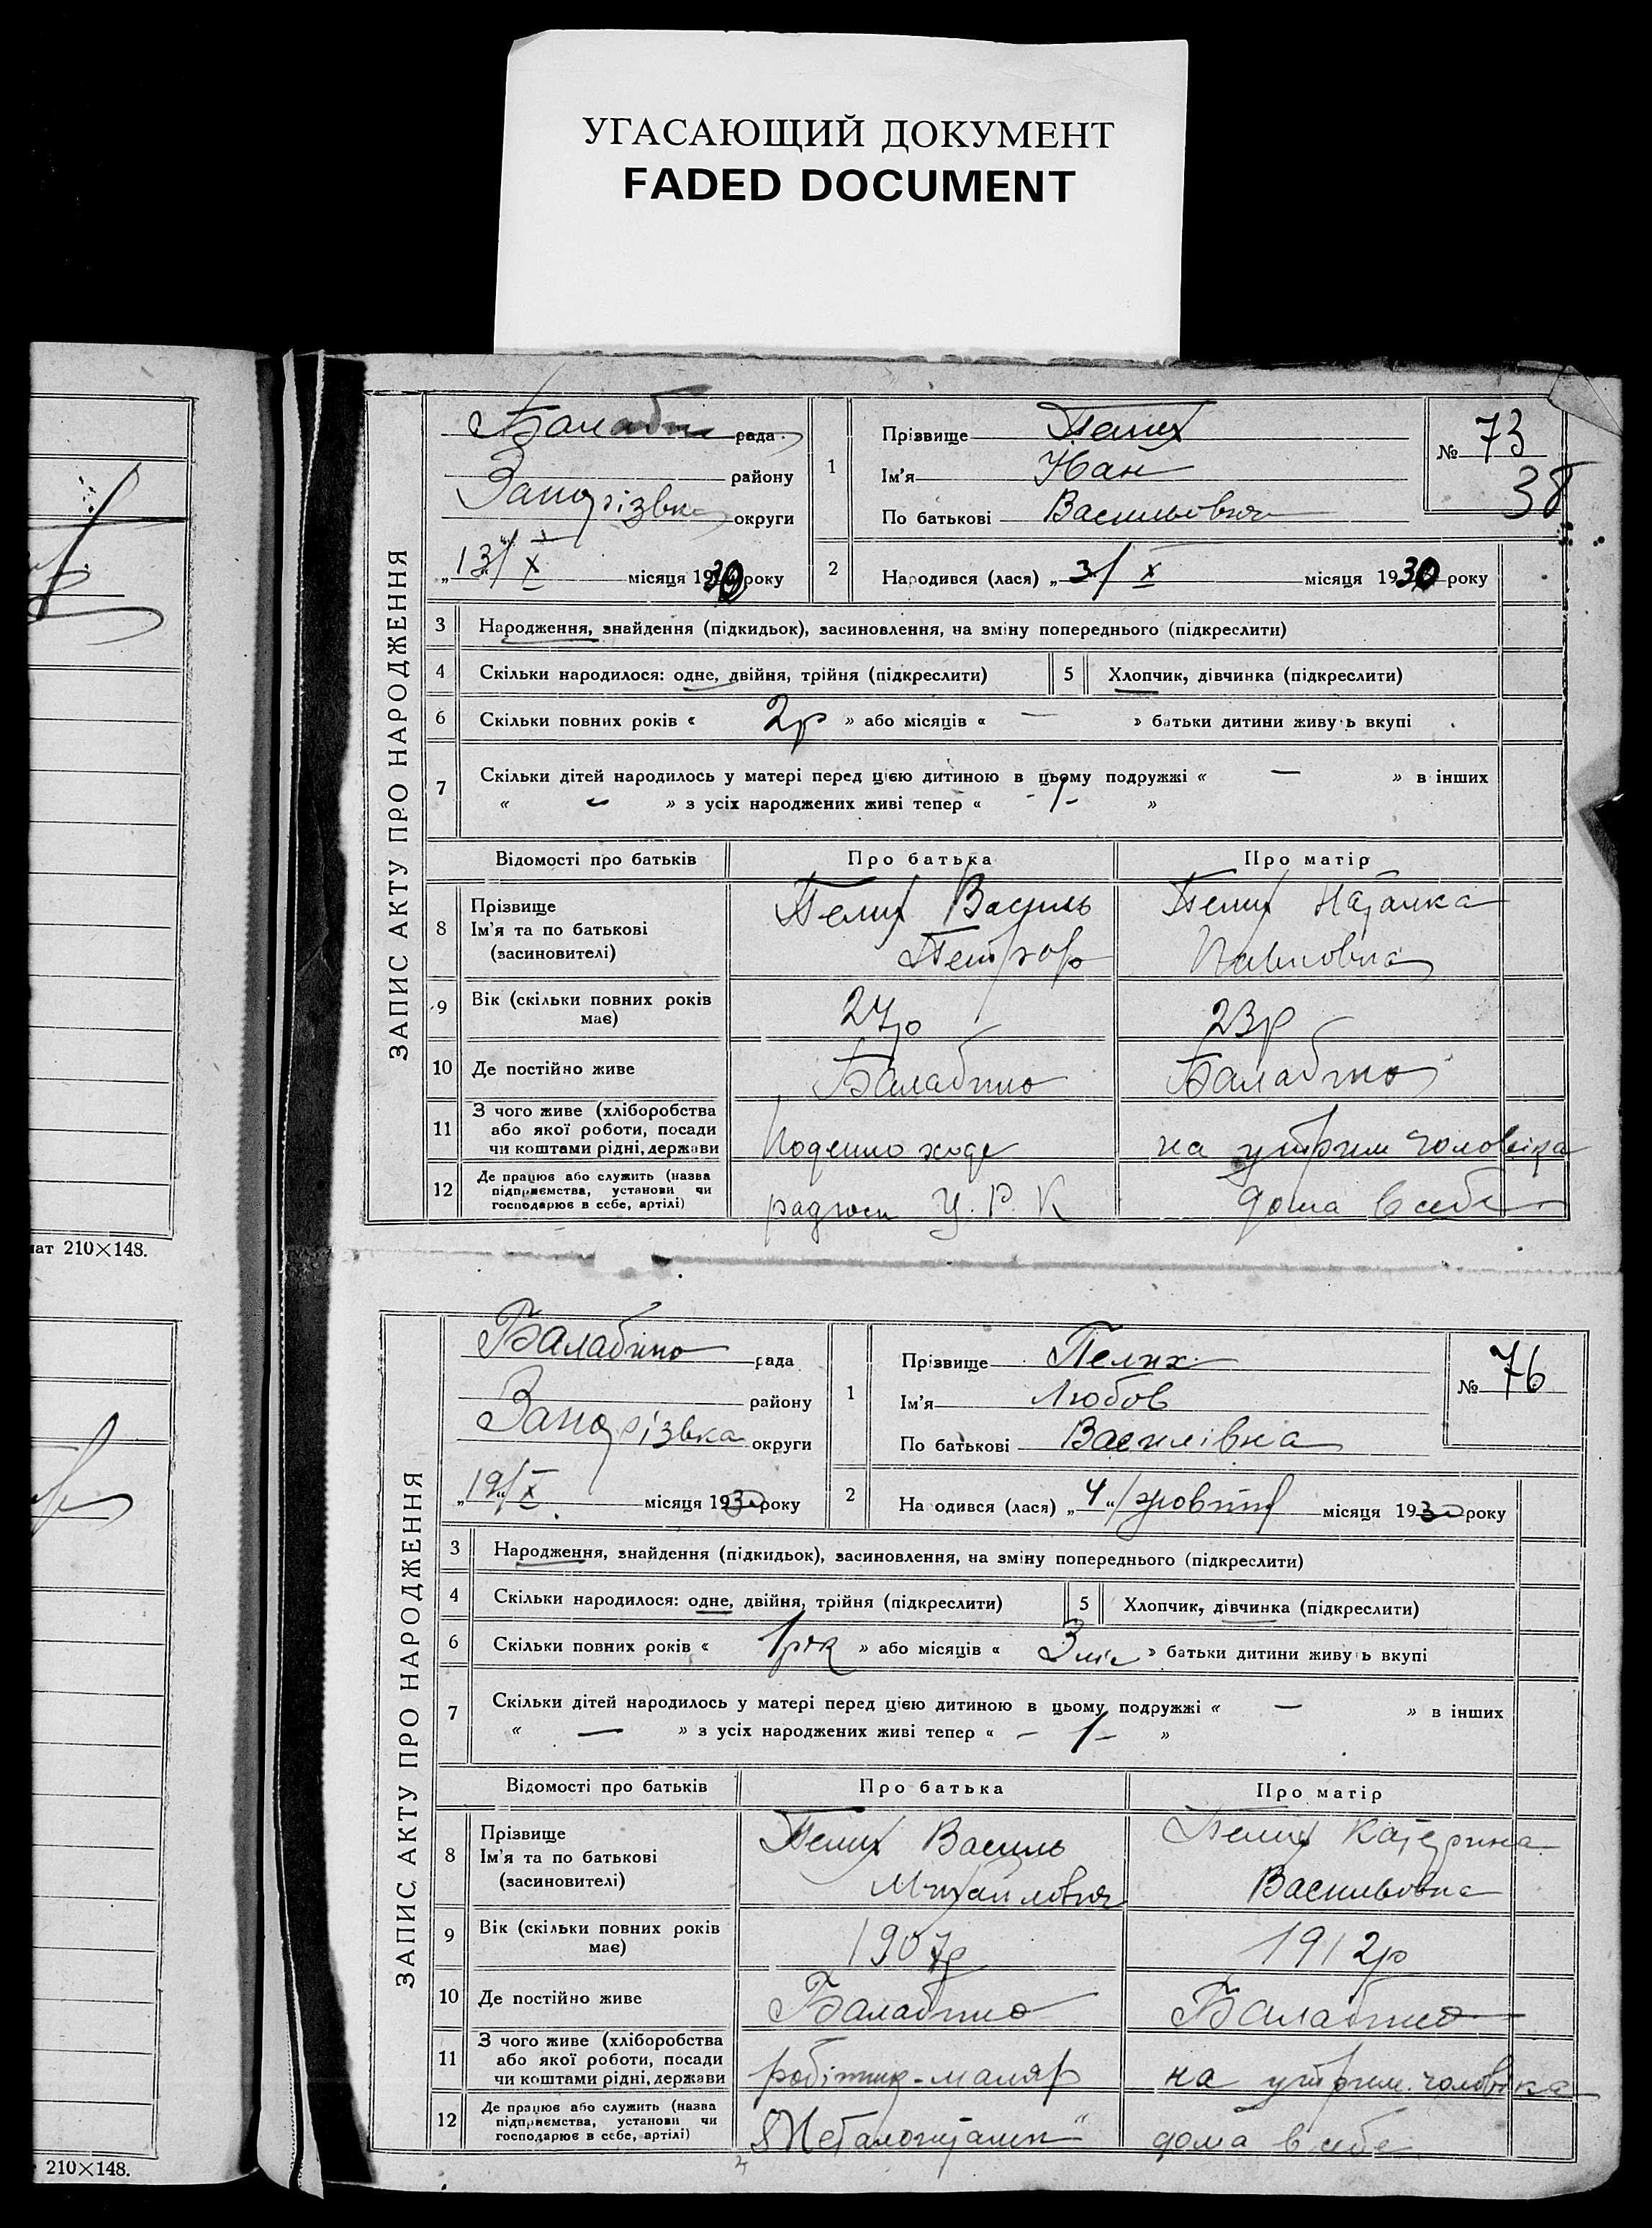 УГАСАЮЩИЙ ДОКУМЕНТ
FADED DOCUMENT
ат 210×148.
210×148.
ЗАПИС АКТУ ПРО НАРОДЖЕННЯ
рада
району
Запорізька округи
„13/X місяця 1930 року
1
Прізвище Пелих
Ім'я Іван
По батькові Васильович
№ 73
38
2
Народився (лася) „3/X місяця 1930 року
3 Народження, знайдення (підкидьок), засиновлення, на зміну попереднього (підкреслити)
4 Скільки народилося: одне, двійня, трійня (підкреслити) 5 Хлопчик, дівчинка (підкреслити)
6 Скільки повних років « 2р » або місяців « — » батьки дитини живуть вкупі
7 Скільки дітей народилось у матері перед цією дитиною в цьому подружжі « — » в інших
« — » з усіх народжених живі тепер « -1- »
Відомості про батьків Про батька Про матір
8 Прізвище
Ім'я та по батькові
(засновителі)
Пелих Василь
Петров
Пелих Наталка
Павловна
9 Вік (скільки повних років має) 27р 23р
10 Де постійно живе Балабино Балабино
11 З чого живе (хліборобства
або якої роботи, посади
чи коштами рідні, держави
Поденно ходе
на утрим чоловіка
12 Де працює або служить (назва
підприємства, установи чи
господарює в себе, артілі)
У. Р. К
дома в себе
ЗАПИС АКТУ ПРО НАРОДЖЕННЯ
Балабино рада
району
Запорізька округи
„19/X місяця 1930 року
1
Прізвище Пелих
Ім'я Любов
По батькові Василівна
№ 76
2
Народився (лася) „4"/жовтня місяця 1930 року
3 Народження, знайдення (підкидьок), засиновлення, на зміну попереднього (підкреслити)
4 Скільки народилося: одне, двійня, трійня (підкреслити) 5 Хлопчик, дівчинка (підкреслити)
6 Скільки повних років « 1рік » або місяців « 3 міс » батьки дитини живуть вкупі
7 Скільки дітей народилось у матері перед цією дитиною в цьому подружжі « — » в інших
« — » з усіх народжених живі тепер « -1- »
Відомості про батьків Про батька Про матір
8 Прізвище
Ім'я та по батькові
(засиновителі)
Пелих Василь
Михайлович
Пелих Катерина
Васильовна
9 Вік (скільки повних років має) 1907р 1912р
10 Де постійно живе Балабино Балабино
11 З чого живе (хліборобства
або якої роботи, посади
чи коштами рідні, держави
робітник-маляр
на утрим. чоловіка
12 Де працює або служить (назва
підприємства, установи чи
господарює в себе, артілі)
дома в себе